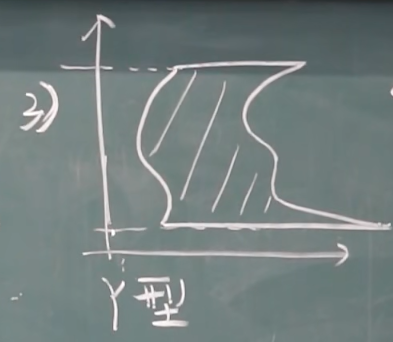 3)
Y型